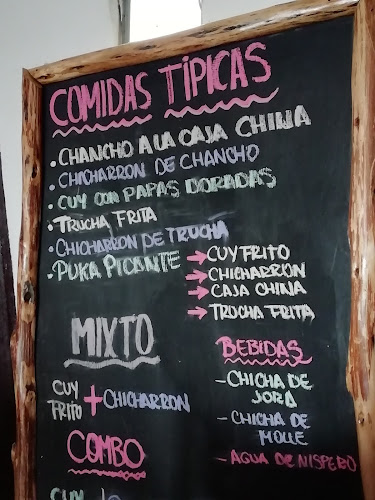 COMIDAS TÍPICAS
• CHANCHO A LA CAJA CHINA
• CHICHARRON DE CHANCHO
• CUY CON PAPAS DORADAS
• TRUCHA FRITA
• CHICHARRON DE TRUCHA
• PUKA PICANTE → CUY FRITO
→ CHICHARRON
→ CAJA CHINA
→ TRUCHA FRITA
MIXTO
CUY FRITO + CHICHARRON
COMBO
CUY
BEBIDAS
- CHICHA DE
JORA
- CHICHA DE
MOLLE
- AGUA DE NISPERO